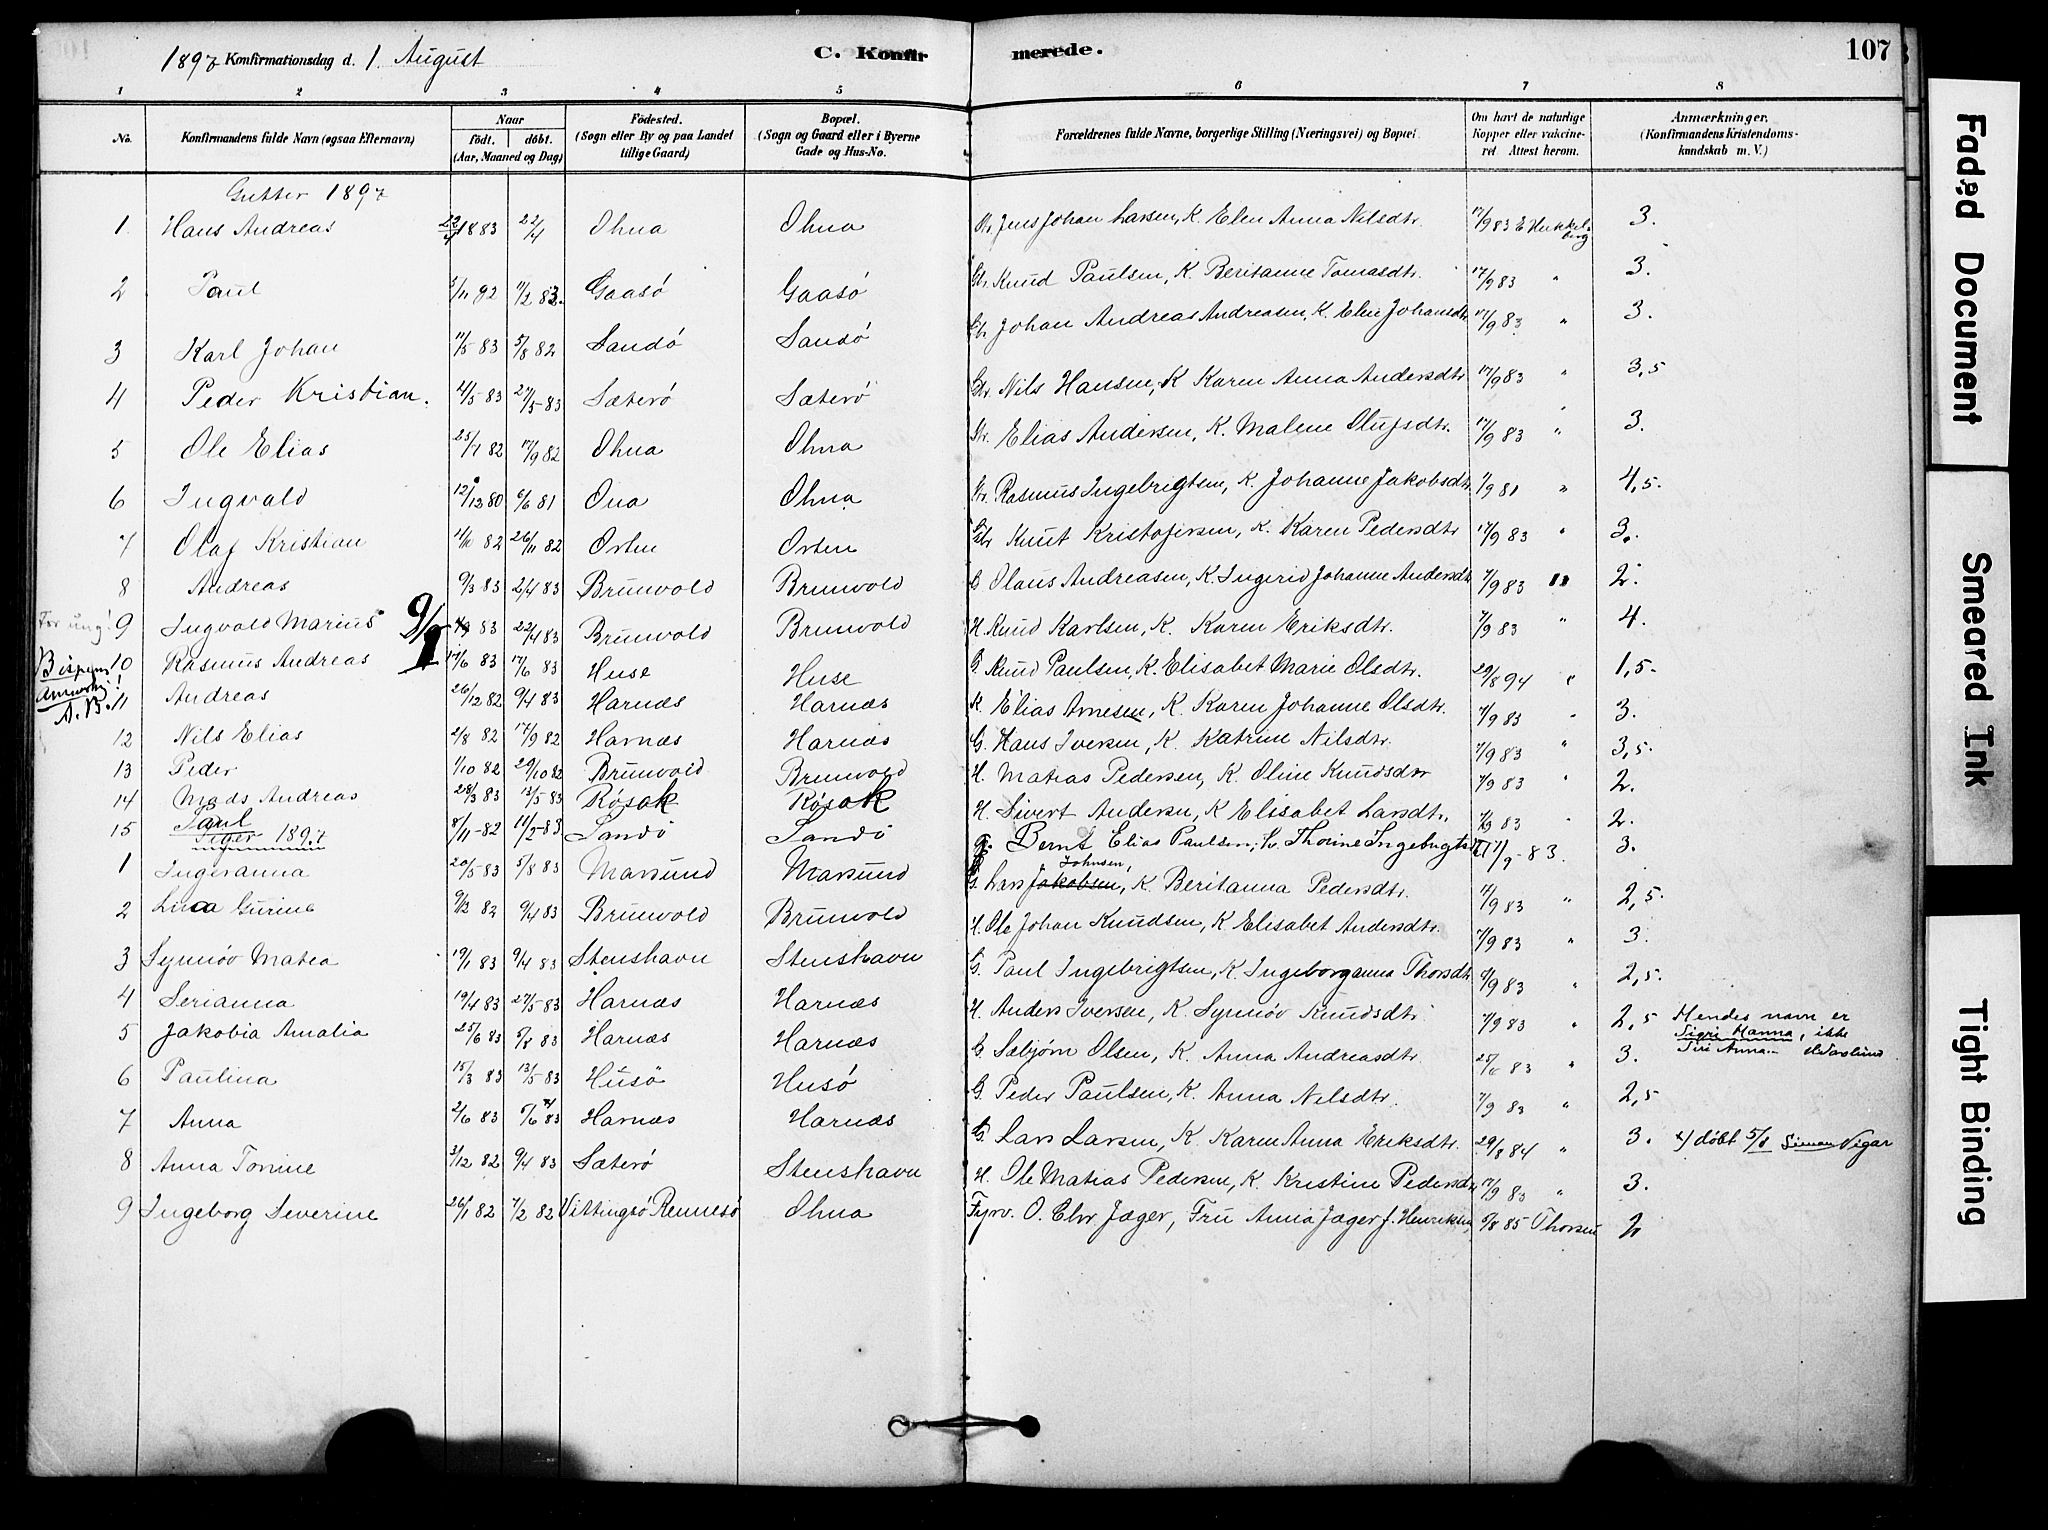 1897 Konfirmationsdag d. 1. August C. Konfir merede. 107
1 2 3 4 5 6 7 8
No. Konfirmandens fulde Navn (ogsaa Efternavn) Naar født. døbt. (Aar, Maaned og Dag) Fødested. (Sogn eller By og paa Landet tillige Gaard) Bopæl. (Sogn og Gaard eller i Byerne Gade og Hus-No. Forældrenes fulde Navne, borgerlige Stilling (Næringsvei) og Bopæl. Om havt de naturlige Kopper eller vakcineret Attest herom. Anmærkninger. (Konfirmandens Kristendomskundskab m. V.)
Gutter 1897
1. Hans Andreas 22/4 1883 22/4 Ohna Ohna Str. Jens Johan Larsen, K. Elen Anna Nilsdtr. 17/9 83 3.
2 Paul 5/11 82 11/2 83. Gaasø Gaasø Str. Knud Paulsen, K. Beritanne Tomasdtr. 17/9 83 " 3.
3 Karl Johan 11/5 83 5/8 82 Sandø Sandø Johan Andreas Andreasen, K. Elen Johansdtr 17/9 83 " 3.
4 Peder Kristian. 4/5 83 27/5-83 Sæterø Sæterø Str. Nils Hansen, K Karen Anna Andersdtr 17/9 83 " 3,5
5 Ole Elias 25/7 82 17/9 82 Ohna Ohna Str. Elias Andersen, K. Malene Olufsdtr. 17/9 83 " 3.
6 Ingvald 12/12 80 6/6 81 Ona Ohna Str. Rasmus Ingebrigtsen, K. Johanne Jakobsdtr. 1/9 81 " 4,5.
7 Olaf Kristian 11/10 82 26/11 82 Orten Orten Str Knut Kristofersen, K. Karen Pedersdtr 17/9 83 " 3.
8 Andreas 9/3 83 2/4 83 Brunvold Brunvold G Olaus Andreasen, K. Ingerid Johanne Andersdtr 7/9 83 " 2.
For ung! 9 Ingvald Marius 9/9 83 22/4 83 Brunvold Brunvold H. Knud Karlsen, K. Karen Eriksdtr. 7/9 83 " 4.
Bispens 10 Rasmus Andreas 17/6 83 17/6 83 Huse Huse G. Knud Paulsen, K. Elisabet Marie Olsdtr. 29/8 94 " 1,5.
A. B. 11 Andreas 26/12 82 9/4 83 Harnæs Harnæs K. Elias Arnesen, K. Karen Johanne Olsdtr. 7/9 83 " 3.
12 Nils Elias 2/8 82 17/9 82 Harnæs Harnæs G. Hans Iversen, K. Katrine Nilsdtr. 7/9 83 " 3,5.
13 Peder 1/10 82 29/10 82 Brunvold Brunvold H. Matias Pedersen, K. Oline Knudsdtr 7/9 83 " 2.
14 Mads Andreas 28/3 83 13/5 83 Røsok Røsok H. Sivert Andersen, K Elisabet Larsdtr. 7/9 83 " 2.
15 Paul 8/11-82 11/2-83 Sandø Sandø G. Bernt Elias Paulsen, K. Thorine Ingebrigtsdtr 17/9-83. 3.
Piger 1897
1 Ingeranna 20/5-83 5/8 83 Marsund Marsund G. Lars Jakobsen Johnsen, K. Beritanna Pedersdtr. 11/9 83 " 2,5.
2 Lina Gurine 9/12 82 9/4 83 Brunvold Brunvold H. Ole Johan Knudsen, K Elisabet Andersdtr. 7/9 83 " 3.
3 Synnøv Matea 19/1 83 9/4 83 Stenshavn Stenshavn G. Paul Ingebrigtsen, K. Ingeborganna Thorsdtr 9/9 83 " 2,5.
4 Serianna 19/4 83 27/5-83 Harnæs Harnæs H. Anders Iversen, K. Synnøv Knudsdtr. 7/9 83 " 2,5 Hendes navn er Sigri Hanna, ikke Siri Anna-
5 Jakobia Amalia 25/6 83 5/8 83 Harnæs Harnæs G. Sæbjørn Olsen, K. Anna Andreasdtr 83 " 3.
6 Paulina 15/3 83 13/5 83 Husö Husø G. Peder Paulsen, K. Anna Nilsdtr. 7/9 83 " 2,5
7 Anna 2/6 83 83 Harnæs Harnæs G. Lars Larsen, K. Karen Anna Eriksdtr. 29/8 84 " 3. x) døbt 5/8 Vigar
8 Anna Tomine 3/12 82 9/4 83 Sæterø Stenshavn H. Ole Matias Pedersen, K. Kristine Pedersdtr 17/9 83 " 3.
9 Ingeborg Severine 26/1 82 7/2 82 Vittingsö Rennesø Ohna Fyrv. O. Chr. Jæger, Fru Anna Jæger f. Henriksen 5/8 85 Thorsen 2
Faded Document
Smeared Ink
Tight Binding